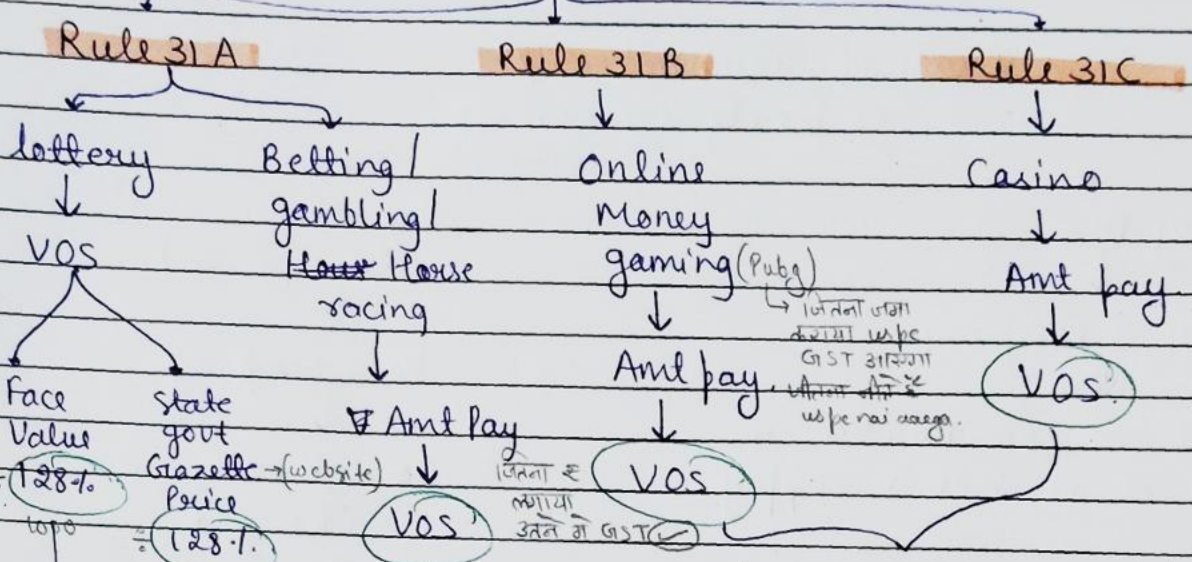 Rule 31A
Rule 31B
Rule 31C
lottery
VOS
Face
Value
128%
1000
State
govt
Gazette → (website)
Price
÷ 128%
Betting /
gambling /
Horse
racing
Amt Pay
VOS
जितना ₹
लगाया
उतने में GST
Online
Money
gaming (Pubg)
जितना जमा
कराया uspe
GST आएगा
जीतने ₹
uspe nai aaega.
Amt pay.
VOS
Casino
Amt pay
VOS.